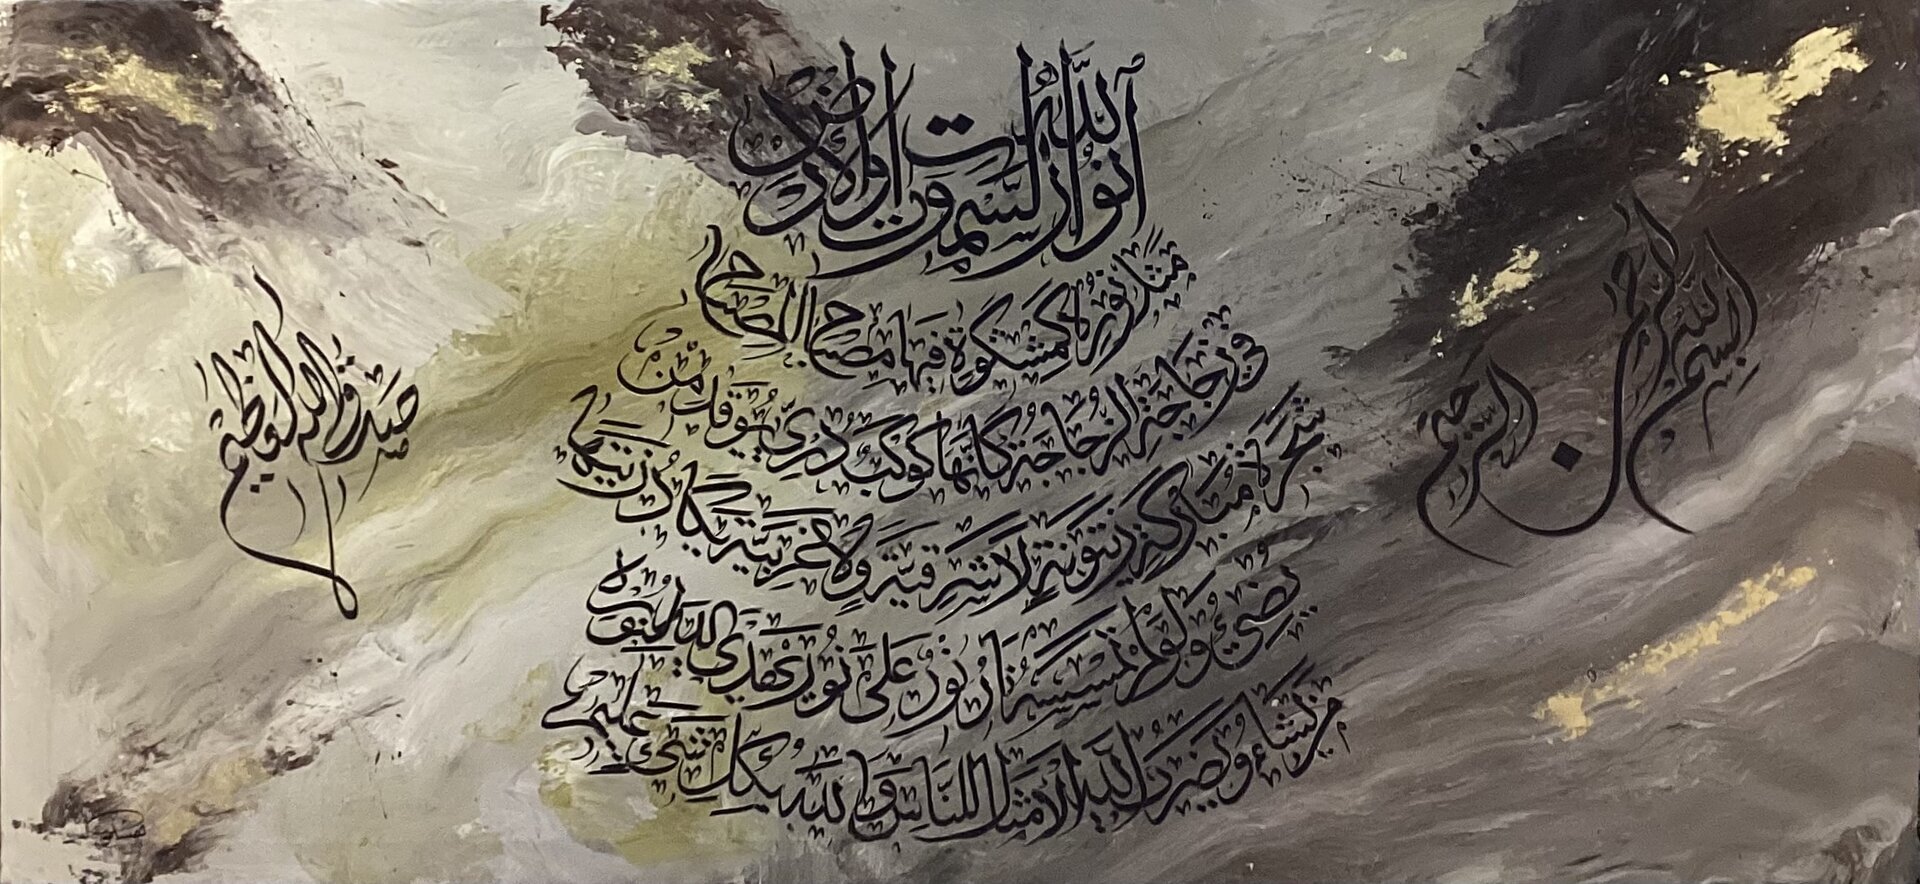 بسم الله الرحمن الرحيم
الله نور السموت والارض
مثل نوره كمشكوة فيها مصباح المصباح
في زجاجة الزجاجة كانها كوكب دري يوقد من
شجرة مباركة زيتونة لا شرقية ولا غربية يكاد زيتها
يضيء ولو لم تمسسه نار نور على نور يهدي الله لنوره
من يشاء ويضرب الله الامثال للناس والله بكل شيء عليم
صدق الله العظيم